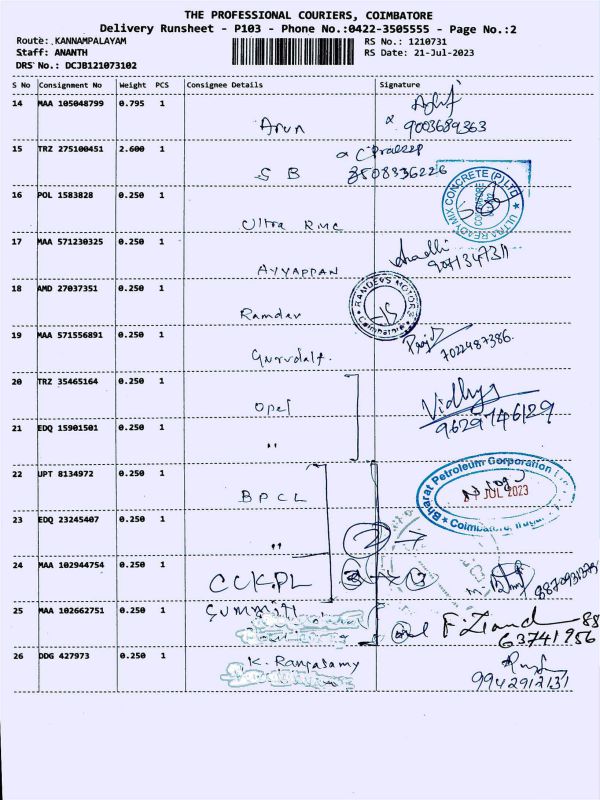 THE PROFESSIONAL COURIERS, COIMBATORE
Delivery Runsheet - P103 - Phone No.:0422-3505555 - Page No.:2
Route: KANNAMPALAYAM
RS No.: 1210731
Staff: ANANTH
RS Date: 21-Jul-2023
DRS No.: DCJB121073102
S No Consignment No Weight PCS Consignee Details Signature
14 MAA 105048799 0.795 1
Arun
9003689363
15 TRZ 275100451 2.600 1
S B
3508336226
16 POL 1583828 0.250 1
Ultra RMC
ULTRA READY MIX CONCRETE (P) LTD
17 MAA 571230325 0.250 1
AYYAPPAN
18 AMD 27037351 0.250 1
Ramdev
RAMDEV MOTORS
Coimbatore
19 MAA 571556891 0.250 1
7022487386.
20 TRZ 35465164 0.250 1
Opel
Vidhya
9629746129
21 EDQ 15901501 0.250 1
"
22 JPT 8134972 0.250 1
BPCL
Bharat Petroleum Corporation
JUL 2023
Coimbatore
23 EDQ 23245407 0.250 1
"
2 →
24 MAA 102944754 0.250 1
CCKPL
25 MAA 102662751 0.250 1
Summitt
26 DDG 427973 0.250 1
K. Rangasamy
9942912131